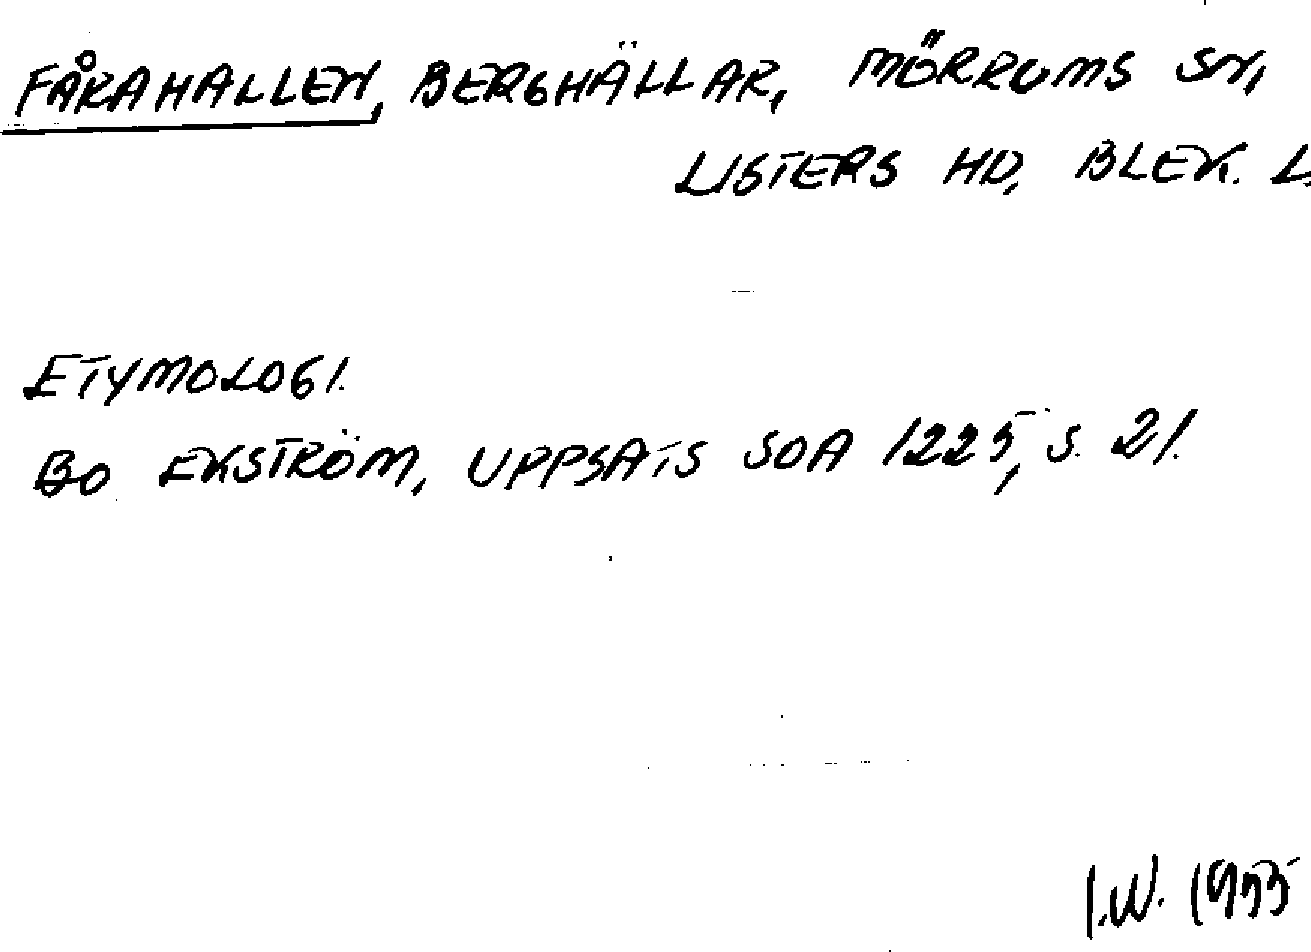 FÅRAHALLEN, BERGHÄLLAR, MÖRRUMS SN,
LISTERS HD, BLEK. L.
ETYMOLOGI.
BO EKSTRÖM, UPPSATS SOA 1225, S. 21.
I.W. 1955